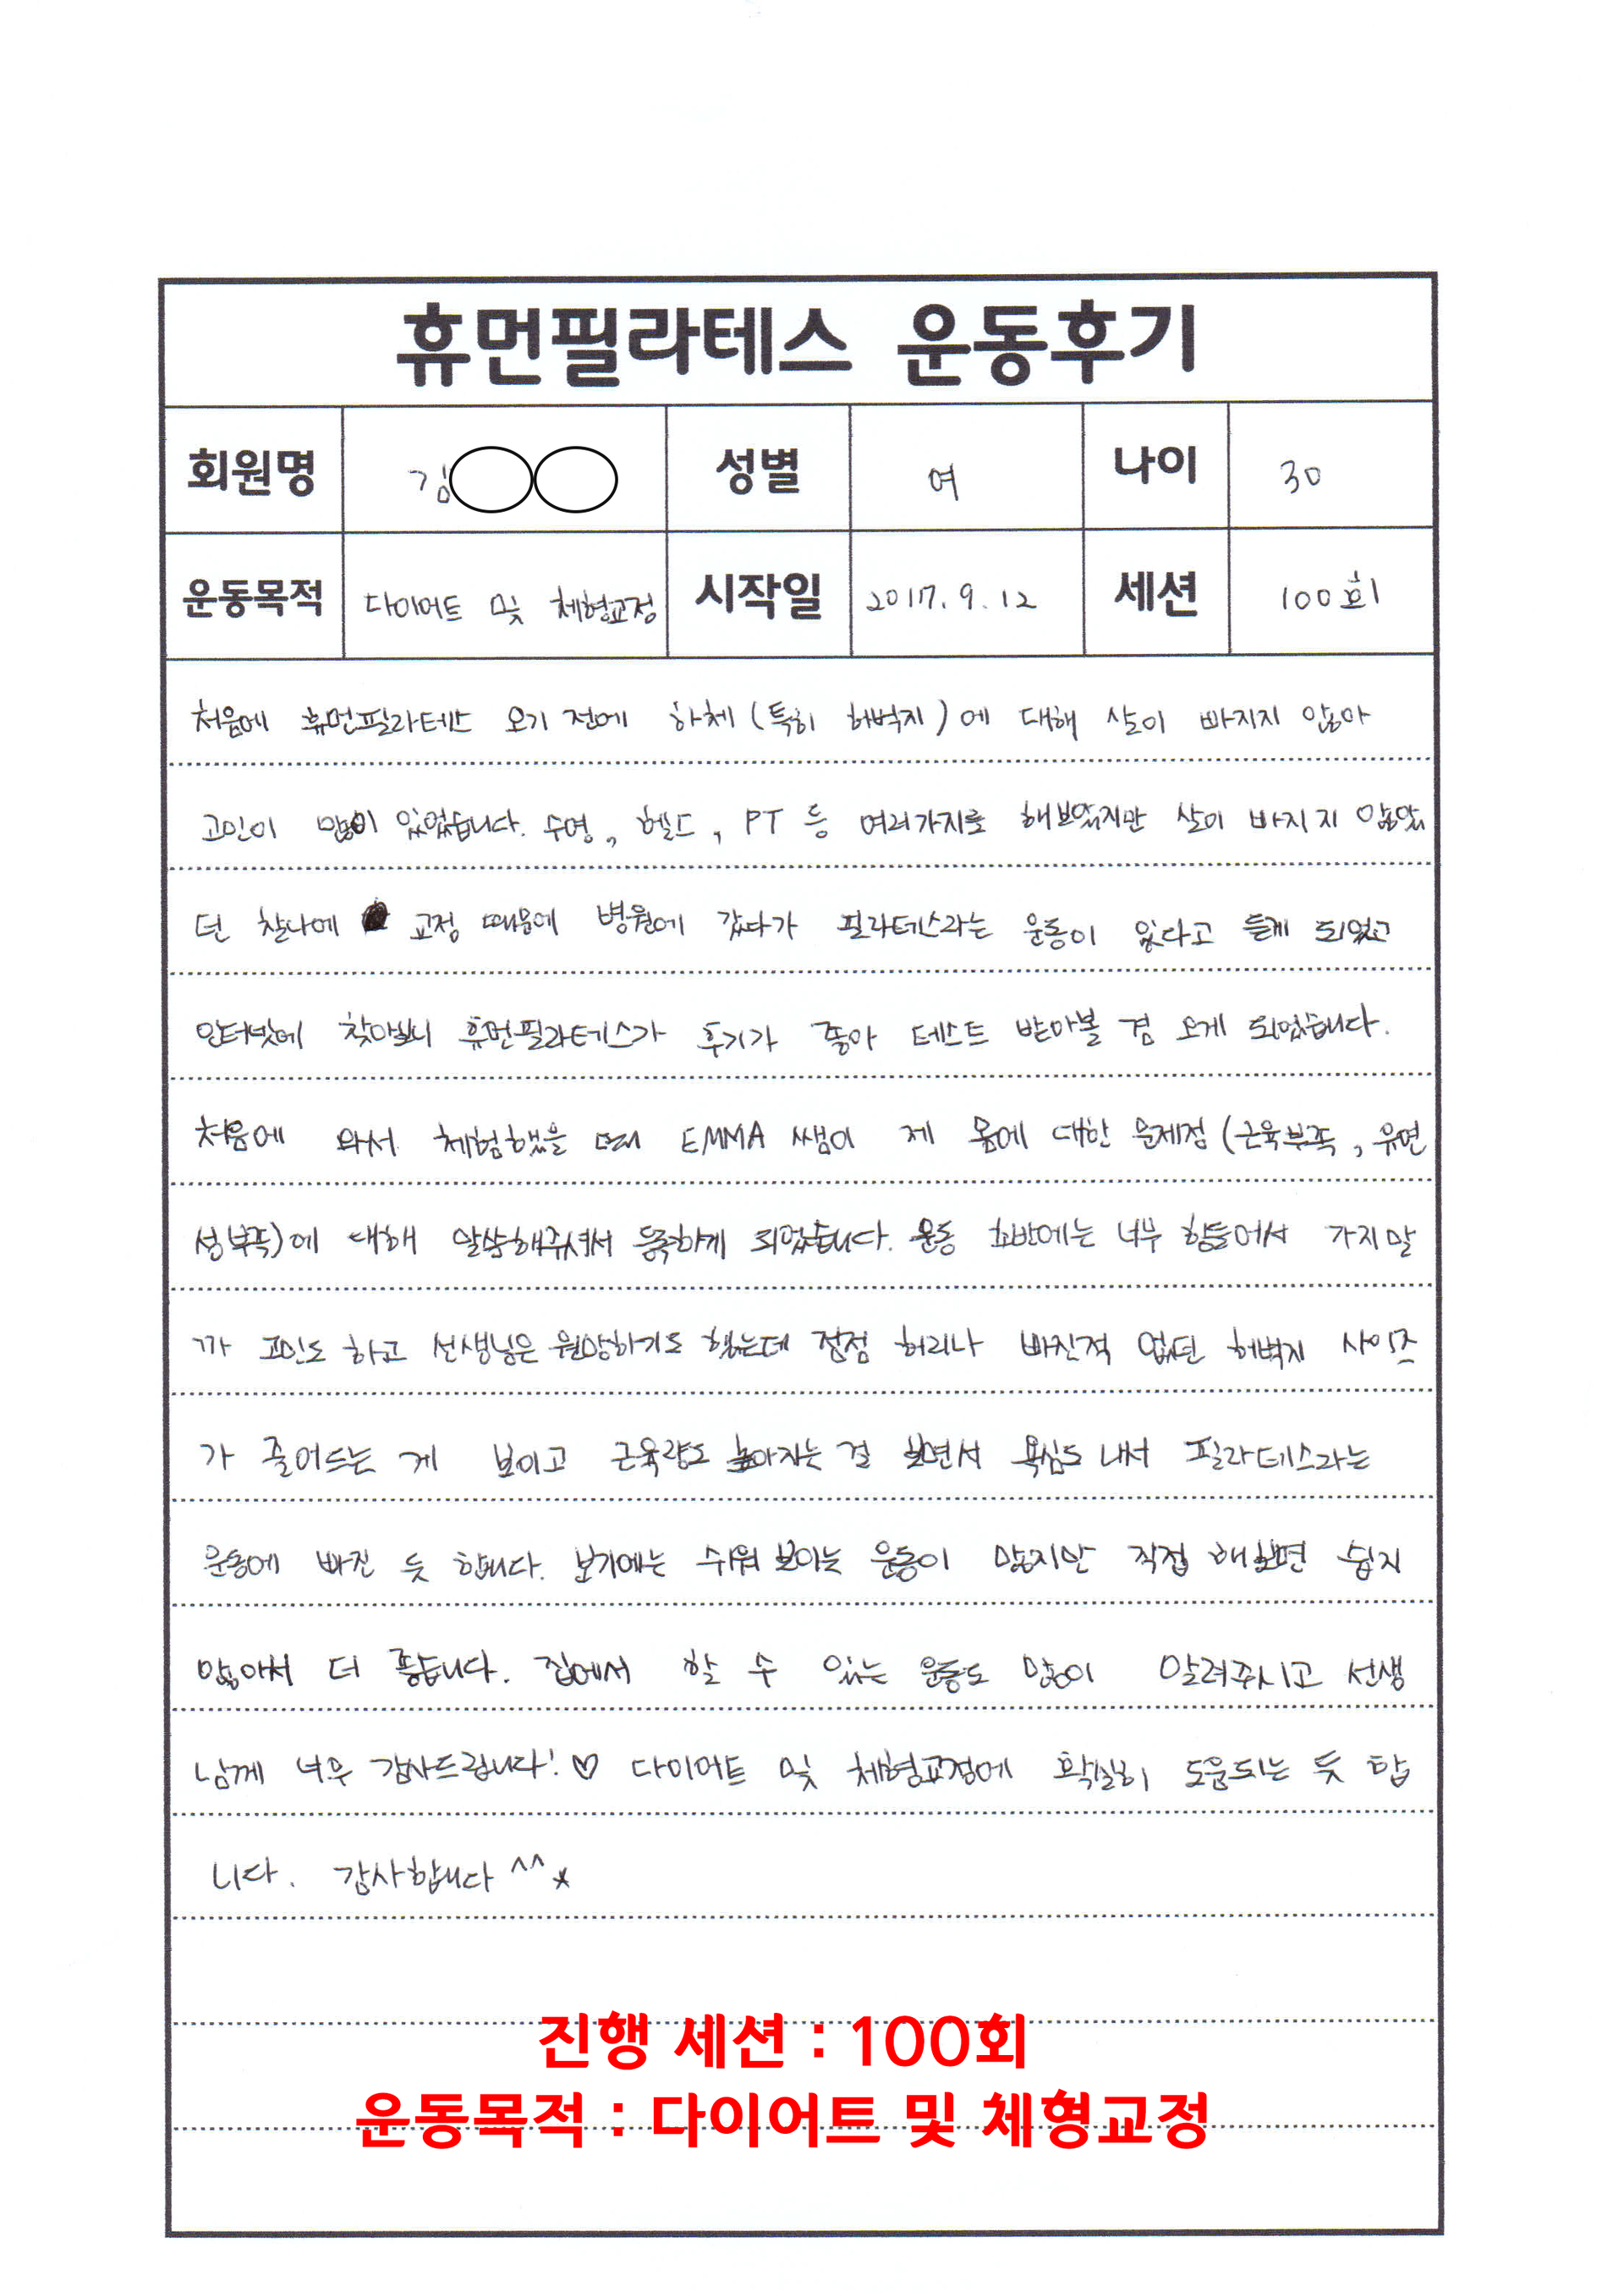 휴먼필라테스 운동후기
회원명 김 성별 여 나이 30
운동목적 다이어트 및 체형교정 시작일 2017.9.12 세션 100회
처음에 휴먼필라테스 오기 전에 하체(특히 허벅지)에 대해 살이 빠지지 않아
고민이 많이 있었습니다. 수영, 헬스, PT 등 여러가지를 해보았지만 살이 빠지지 않았
던 찰나에 교정 때문에 병원에 갔다가 필라테스라는 운동이 있다고 듣게 되었고
인터넷에 찾아보니 휴먼필라테스가 후기가 좋아 테스트 받아볼 겸 오게 되었습니다.
처음에 와서 체험했을 때 EMMA 쌤이 제 몸에 대한 문제점(근육부족, 유연
성부족)에 대해 말씀해주셔서 등록하게 되었습니다. 운동 초반에는 너무 힘들어서 가지말
까 고민도 하고 선생님을 원망하기도 했는데 점점 허리나 빠진적 없던 허벅지 사이즈
가 줄어드는 게 보이고 근육량도 높아지는 걸 보면서 욕심도 내서 필라테스라는
운동에 빠진 듯 합니다. 보기에는 쉬워 보이는 운동이 많지만 직접 해보면 쉽지
않아서 더 좋습니다. 집에서 할 수 있는 운동도 많이 알려주시고 선생
님께 너무 감사드립니다!♡ 다이어트 및 체형교정에 확실히 도움되는 듯 합
니다. 감사합니다 ^^*
진행 세션 : 100회
운동목적 : 다이어트 및 체형교정